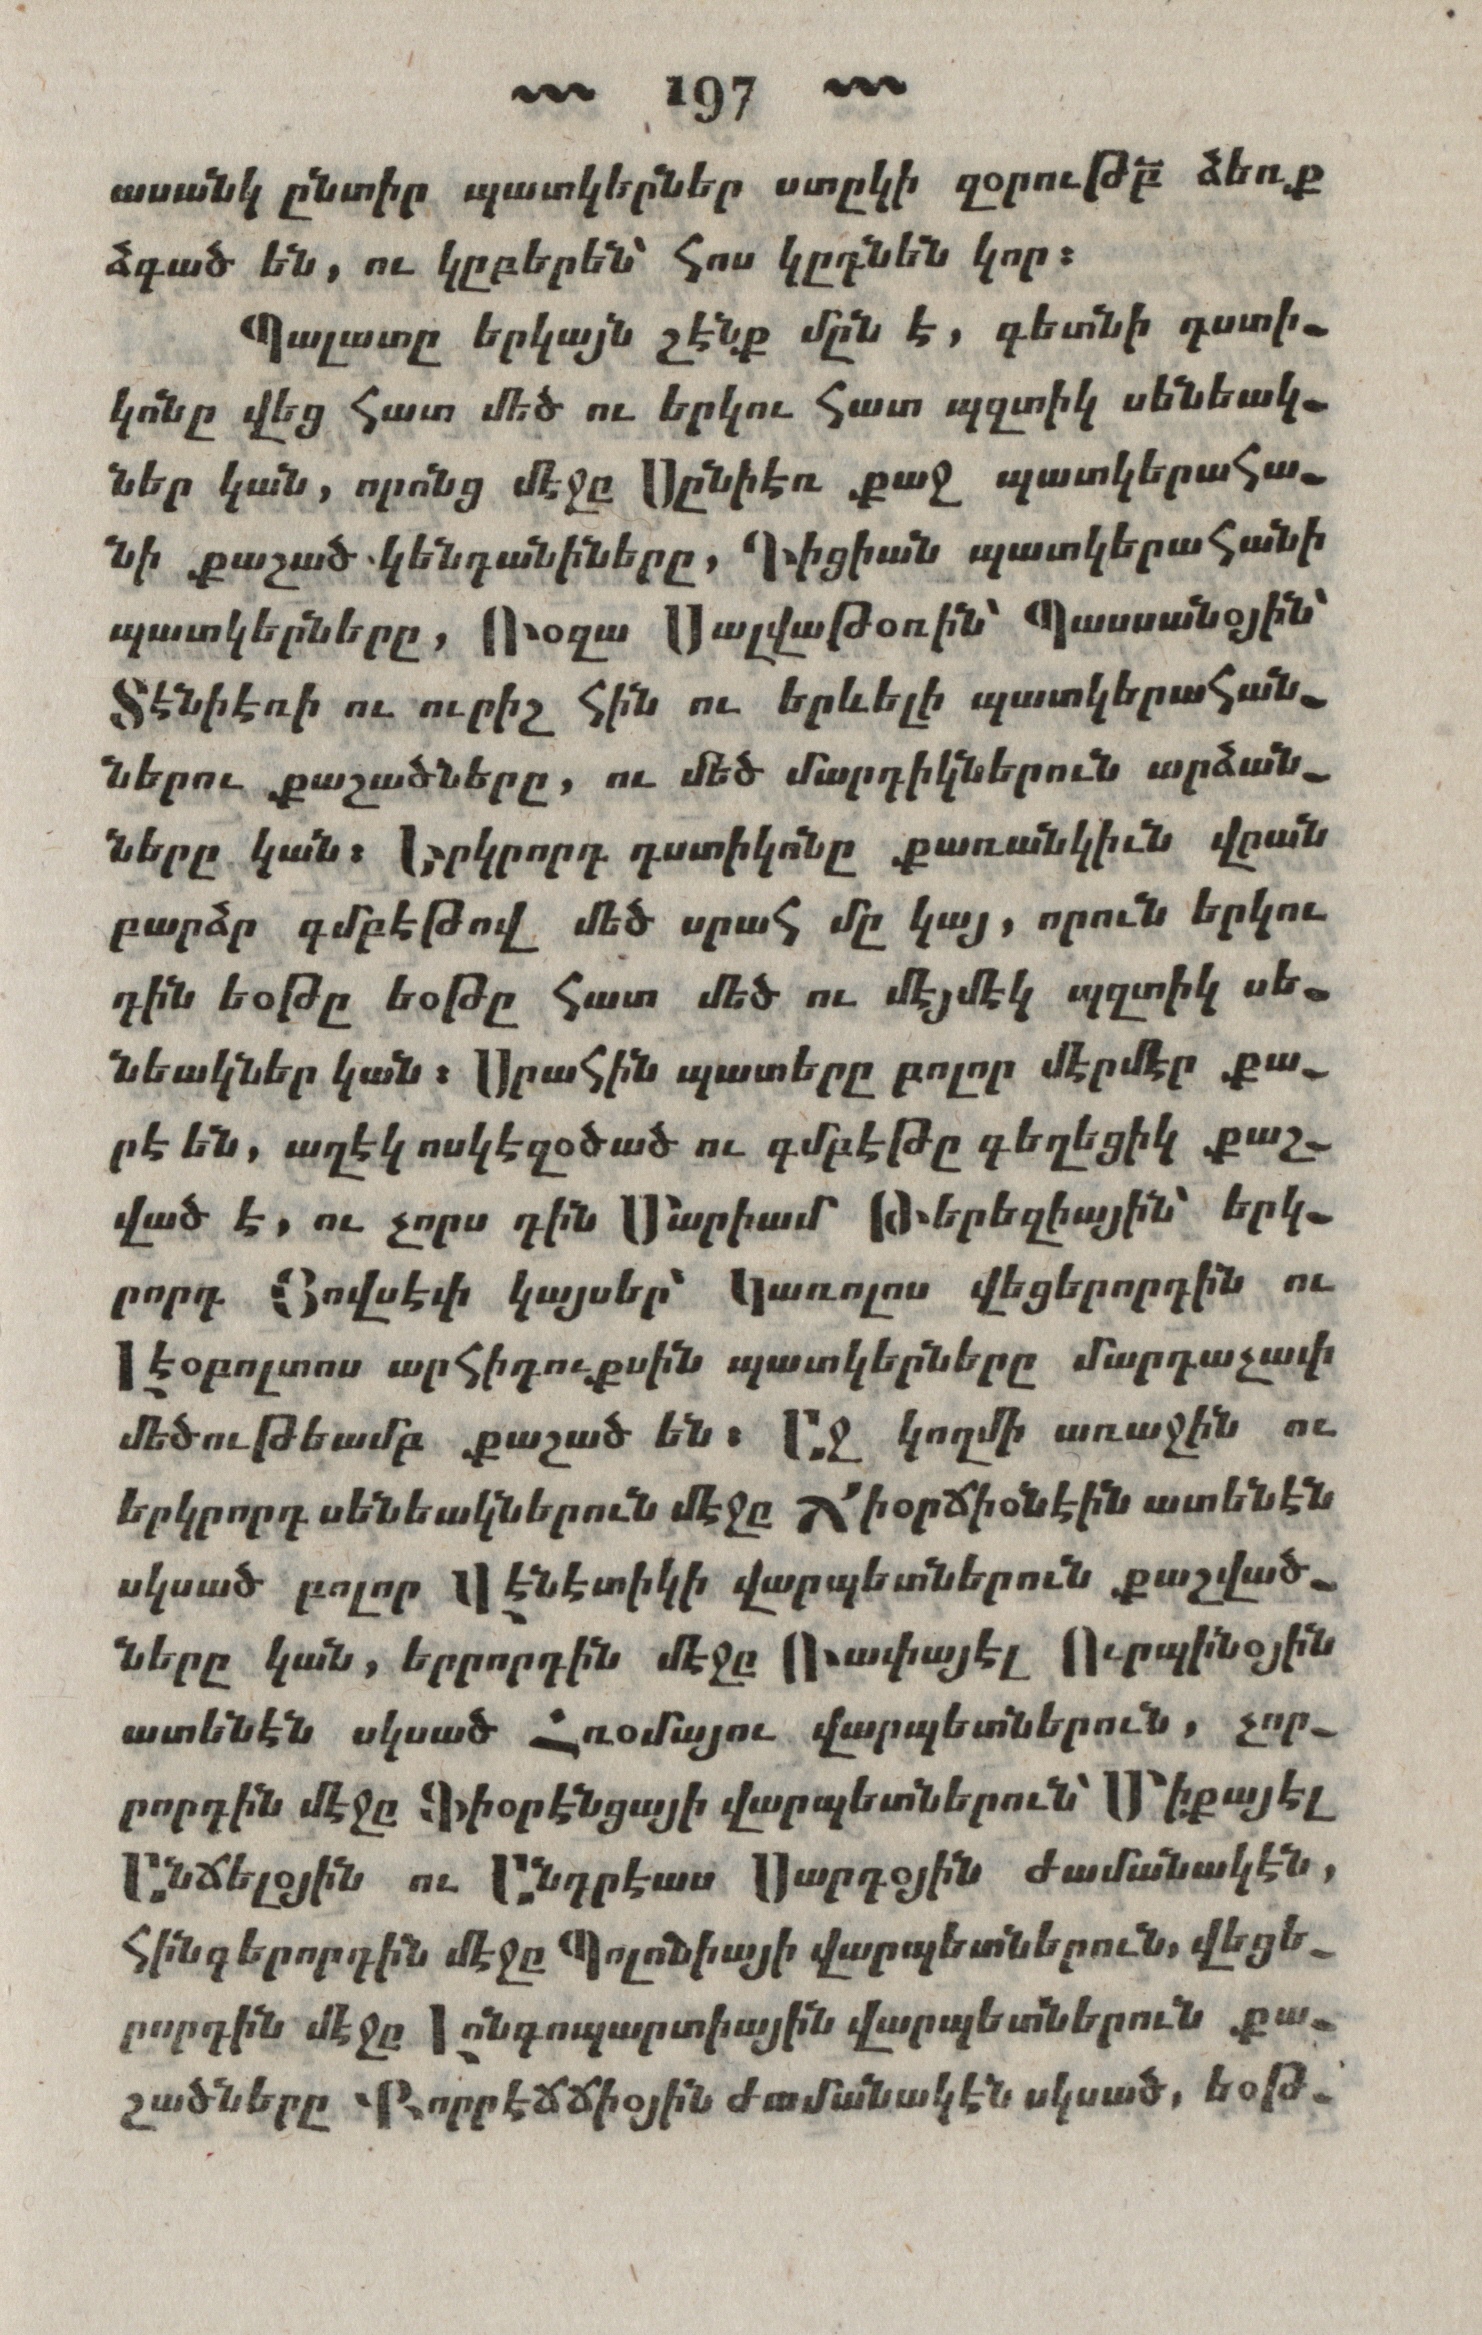 197
ասանկ ընտիր պատկերներ ստըկի զօրութբ՟ ձեռք
ձգած են, ու կըբերեն՝ հոս կըդնեն կոր։
Պալատը երկայն շէնք մըն է, գետնի դստի-
կոնը վեց հատ մեծ ու երկու հատ պզտիկ սենեակ-
ներ կան, որոնց մէջը Սընիէռ քաջ պատկերահա-
նի քաշած կենդանիները, Դիցիան պատկերահանի
պատկերները, Ռօզա Սալվաթօռին՝ Պասսանօյին՝
Տէնիէռի ու ուրիշ հին ու երևելի պատկերահան-
ներու քաշածները, ու մեծ մարդիկներուն արձան-
ները կան։ Երկրորդ դստիկոնը քառանկիւն վրան
բարձր գմբէթով մեծ սրահ մը կայ, որուն երկու
դին եօթը եօթը հատ մեծ ու մէյմէկ պզտիկ սե-
նեակներ կան։ Սրահին պատերը բոլոր մէրմէր քա-
րէ են, աղէկ ոսկէզօծած ու գմբէթը գեղեցիկ քաշ-
ված է, ու չորս դին Մարիամ Թերեզիային՝ երկ-
րորդ Յովսէփ կայսեր՝ Կառոլոս վեցերորդին ու
Լէօբոլտոս արհիդուքսին պատկերները մարդաչափ
մեծութեամբ քաշած են։ Աջ կողմի առաջին ու
երկրորդ սենեակներուն մէջը Ճիօրճիօնէին ատենէն
սկսած բոլոր Վէնէտիկի վարպետներուն քաշված-
ները կան, երրորդին մէջը Ռափայէլ Ուրպինօյին
ատենէն սկսած Հռօմայու վարպետներուն, չոր-
րորդին մէջը Ֆիօրէնցայի վարպետներուն՝ Միքայէլ
Անճելօյին ու Անդրէաս Սարդօյին ժամանակէն,
հինգերորդին մէջը Պոլոնիայի վարպետներուն, վեցե-
րորդին մէջը Լոնգոպարտիային վարպետներուն քա-
շածները Քորրէճճիօյին ժամանակէն սկսած, եօթ-